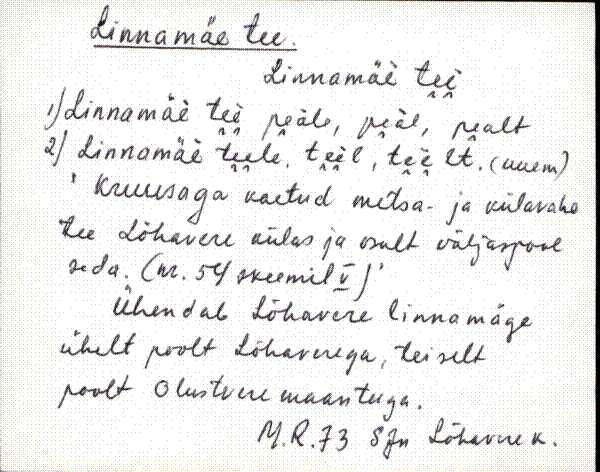 Linnamäe tee.
Linnamäè te̮è̮
1) Linnamäè te̮è̮ pe̮äle, pe̮äl, pe̮alt
2) Linnamäè te̮e̮le, te̮è̮l, te̮è̮lt. (uuem)
' Kruusaga kaetud metsa- ja külavahe
tee Lõhavere külas ja osalt väljaspool
seda. (nr. 54 skeemil V)'
Ühendab Lõhavere linnamäge
ühelt poolt Lõhaverega, teiselt
poolt Olustvere maanteega.
M.R. 73 SJn Lõhavere k.